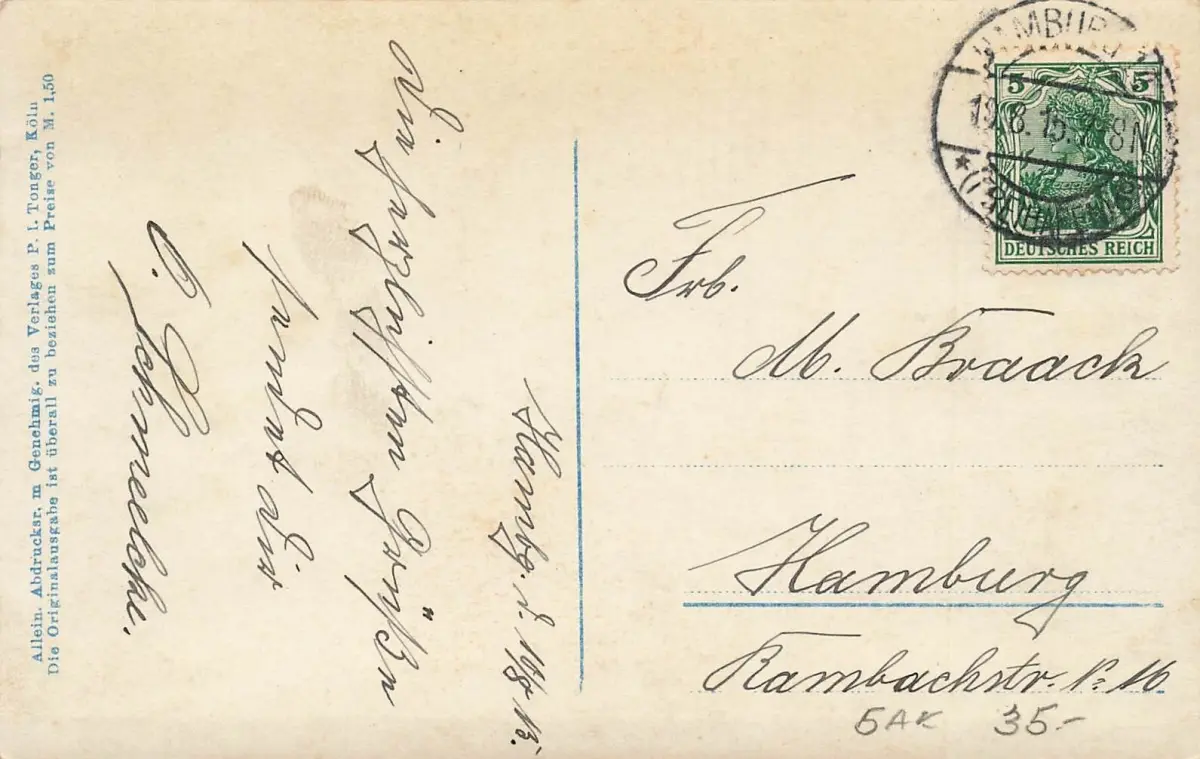 Allein. Abdrucksr. m Genehmig. des Verlages P. I. Tonger, Köln
Die Originalausgabe ist überall zu beziehen zum Preise von M. 1,50
Hambg. d.
Die herzlichsten Grüßen
sendet dir
Schmeelcke.
HAMBURG
8N
5 5
DEUTSCHES REICH
Frb.
M. Braack
Hamburg
Rambachstr. No. 16
5AK 35-